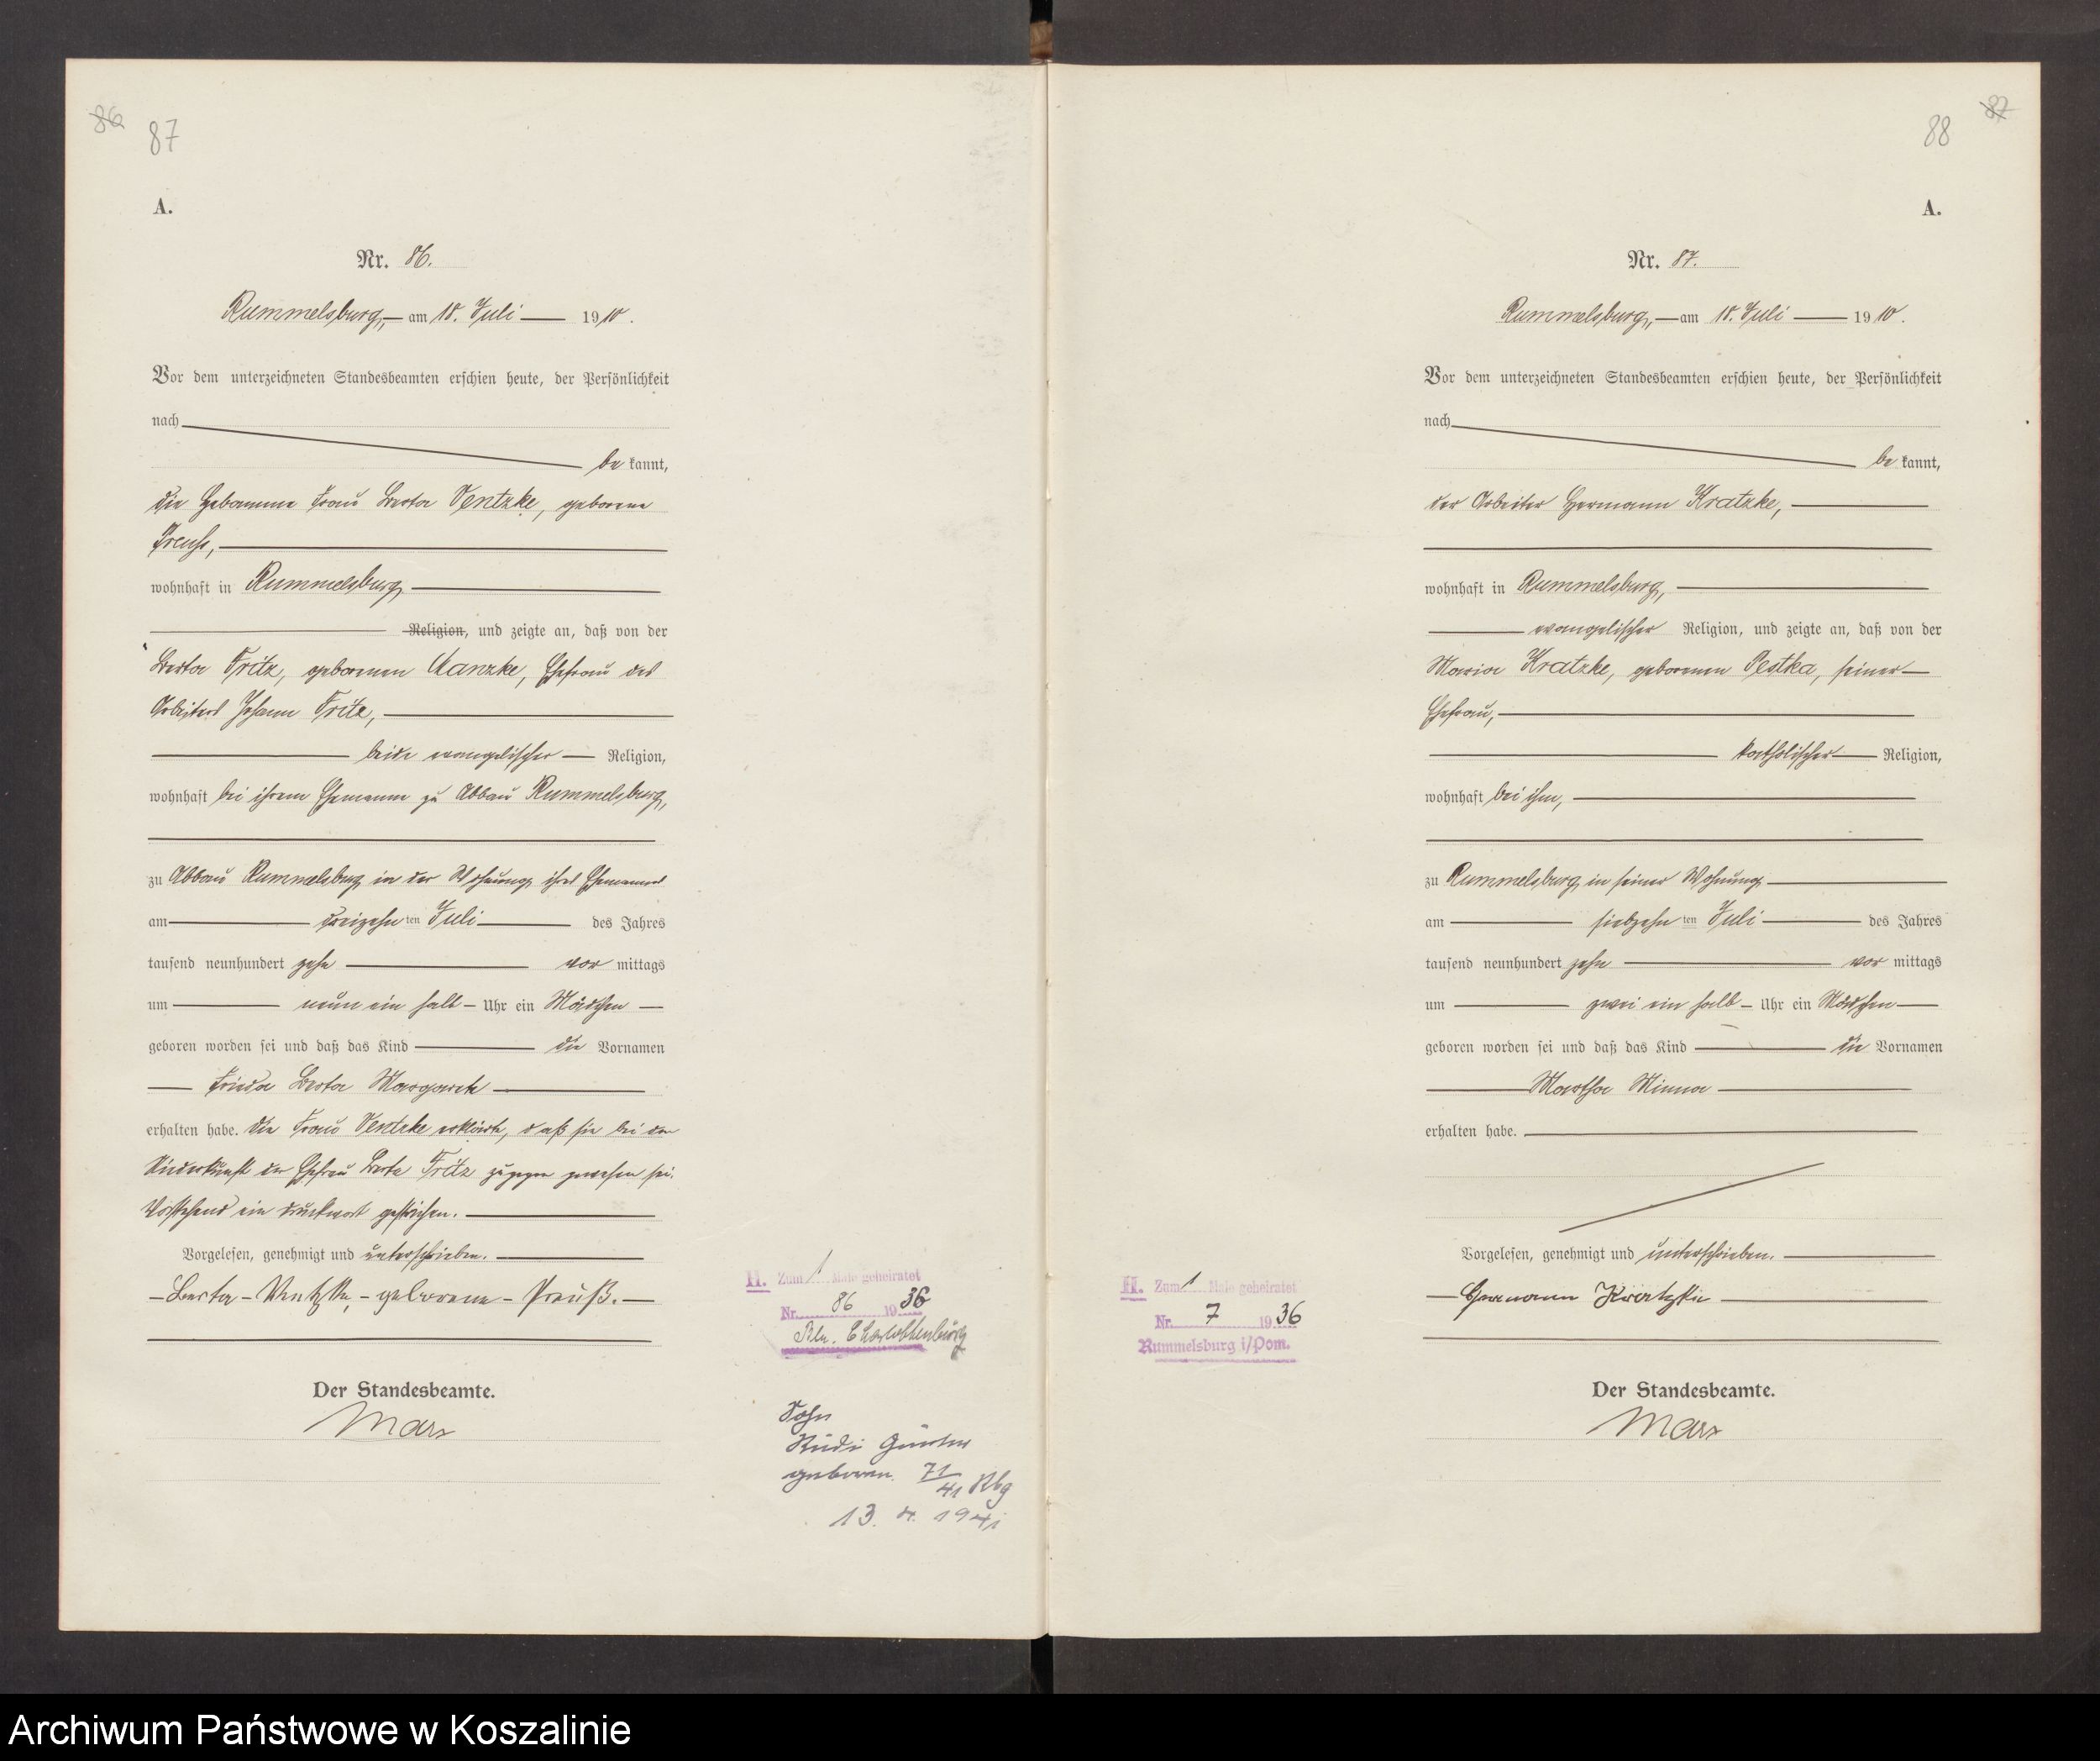 86
87
A.
Nr. 86.
Rummelsburg, am 18. Juli 1910.
Vor dem unterzeichneten Standesbeamten erschien heute, der Persönlichkeit
nach
be kannt,
die Hebamme Frau Berta Ventzke, geborene
Preuß,
wohnhaft in Rummelsburg
Religion, und zeigte an, daß von der
Berta Fritz, geborenen Manzke, Ehefrau des
Arbeiters Johann Fritz,
beide evangelischer Religion,
wohnhaft bei ihrem Ehemanne zu Abbau Rummelsburg,
zu Abbau Rummelsburg in der Wohnung ihres Ehemannes
am dreizehn ten Juli des Jahres
tausend neunhundert zehn vor mittags
um neun ein halb Uhr ein Mädchen
geboren worden sei und daß das Kind die Vornamen
Frieda Berta Margarete
erhalten habe. Die Frau Ventzke erklärte, daß sie bei der
Niederkunft der Ehefrau Berta Fritz zugegen gewesen sei.
Vorstehend ein Druckwort gestrichen.
Vorgelesen, genehmigt und unterschrieben.
Berta Ventzke, geborene Preuß.
Der Standesbeamte.
Marx
H. Zum 1 Male geheiratet
Nr. 86 1936
Bln. Charlottenburg
Sohn
Rudi Günter
geboren 71/41 Rbg
13. 4. 1941
87
88
A.
Nr. 87.
Rummelsburg, am 18. Juli 1910.
Vor dem unterzeichneten Standesbeamten erschien heute, der Persönlichkeit
nach
be kannt,
der Arbeiter Hermann Kratzke,
wohnhaft in Rummelsburg,
evangelischer Religion, und zeigte an, daß von der
Maria Kratzke, geborenen Pestka, seiner
Ehefrau,
katholischer Religion,
wohnhaft bei ihm,
zu Rummelsburg in seiner Wohnung
am siebzehn ten Juli des Jahres
tausend neunhundert zehn vor mittags
um zwei ein halb Uhr ein Mädchen
geboren worden sei und daß das Kind die Vornamen
Martha Minna
erhalten habe.
Vorgelesen, genehmigt und unterschrieben.
Hermann Kratzke
Der Standesbeamte.
Marx
H. Zum 1 Male geheiratet
Nr. 7 1936
Rummelsburg i/Pom.
Archiwum Państwowe w Koszalinie